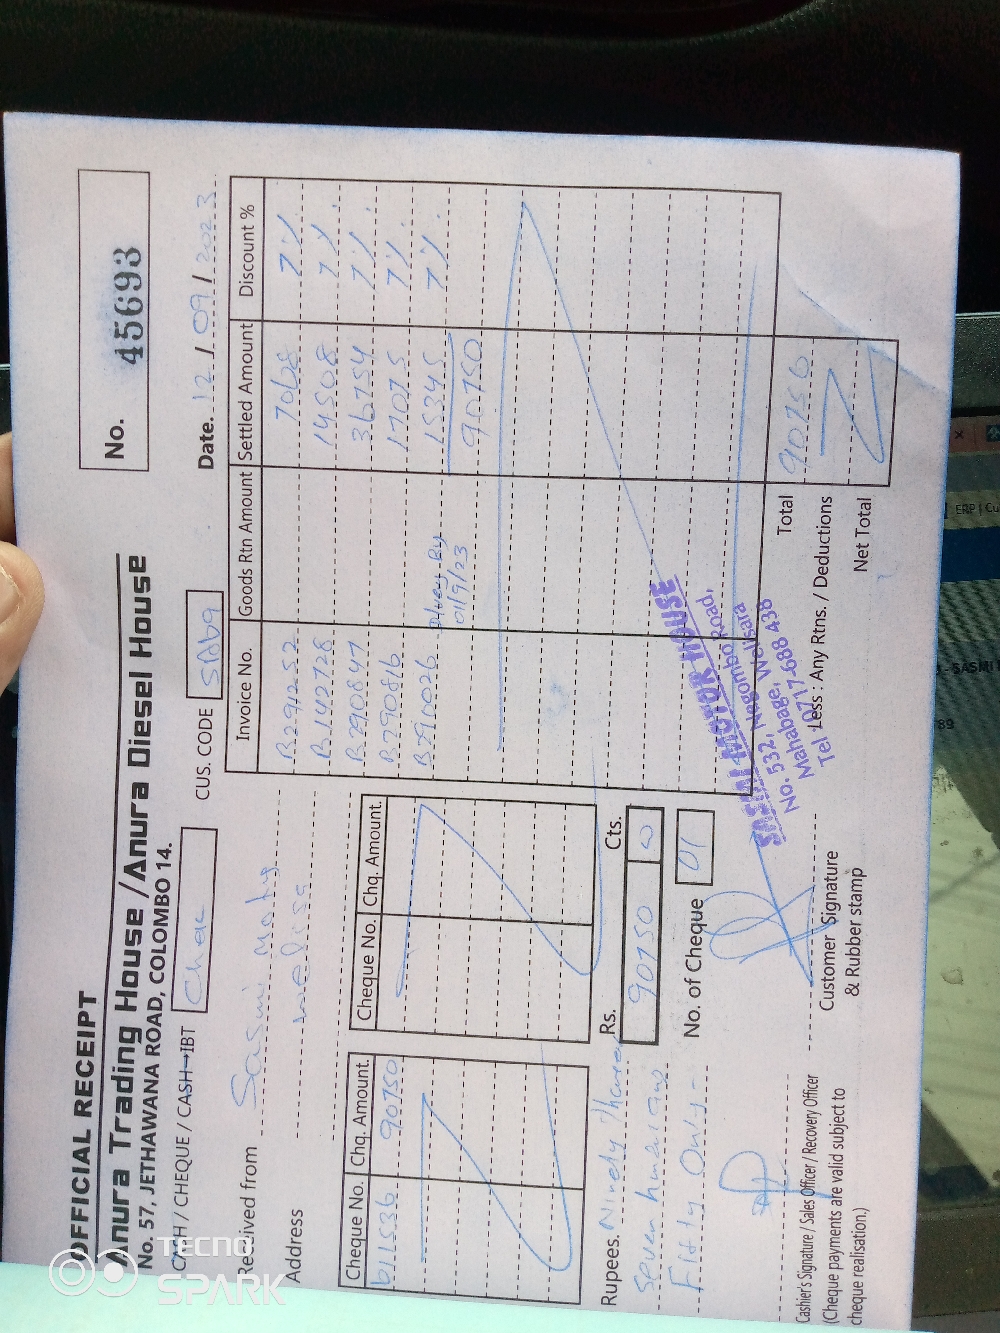 OFFICIAL RECEIPT
Anura Trading House / Anura Diesel House
No. 57, JETHAWANA ROAD, COLOMBO 14.
No. 45693
CASH / CHEQUE / CASH-IBT
CUS. CODE
Date. 12 / 09 / 2023
Received from Sasmi
Address
Invoice No. Goods Rtn Amount Settled Amount Discount %
B291252 7068 7%
B142728 14508 7%
B290847 36754 7%
B290816 17075 7%
B290026 15345 7%
01/9/23
90750
Cheque No. Chq. Amount. Cheque No. Chq. Amount.
611536 90750
Rs. Cts.
90750
Rupees. Ninedy
Seven
Fifty Only -
No. of Cheque 01
Total 90750
Less : Any Rtns. / Deductions
Net Total
SASMI MOTOR HOUSE
No. 532, Negombo Road,
Mahabage, Welisara
Tel : 0717-688 438
Cashier's Signature / Sales Officer / Recovery Officer
(Cheque payments are valid subject to
cheque realisation.)
Customer Signature
& Rubber stamp
TECNO
SPARK
ERP | Cu
- SASMI
89